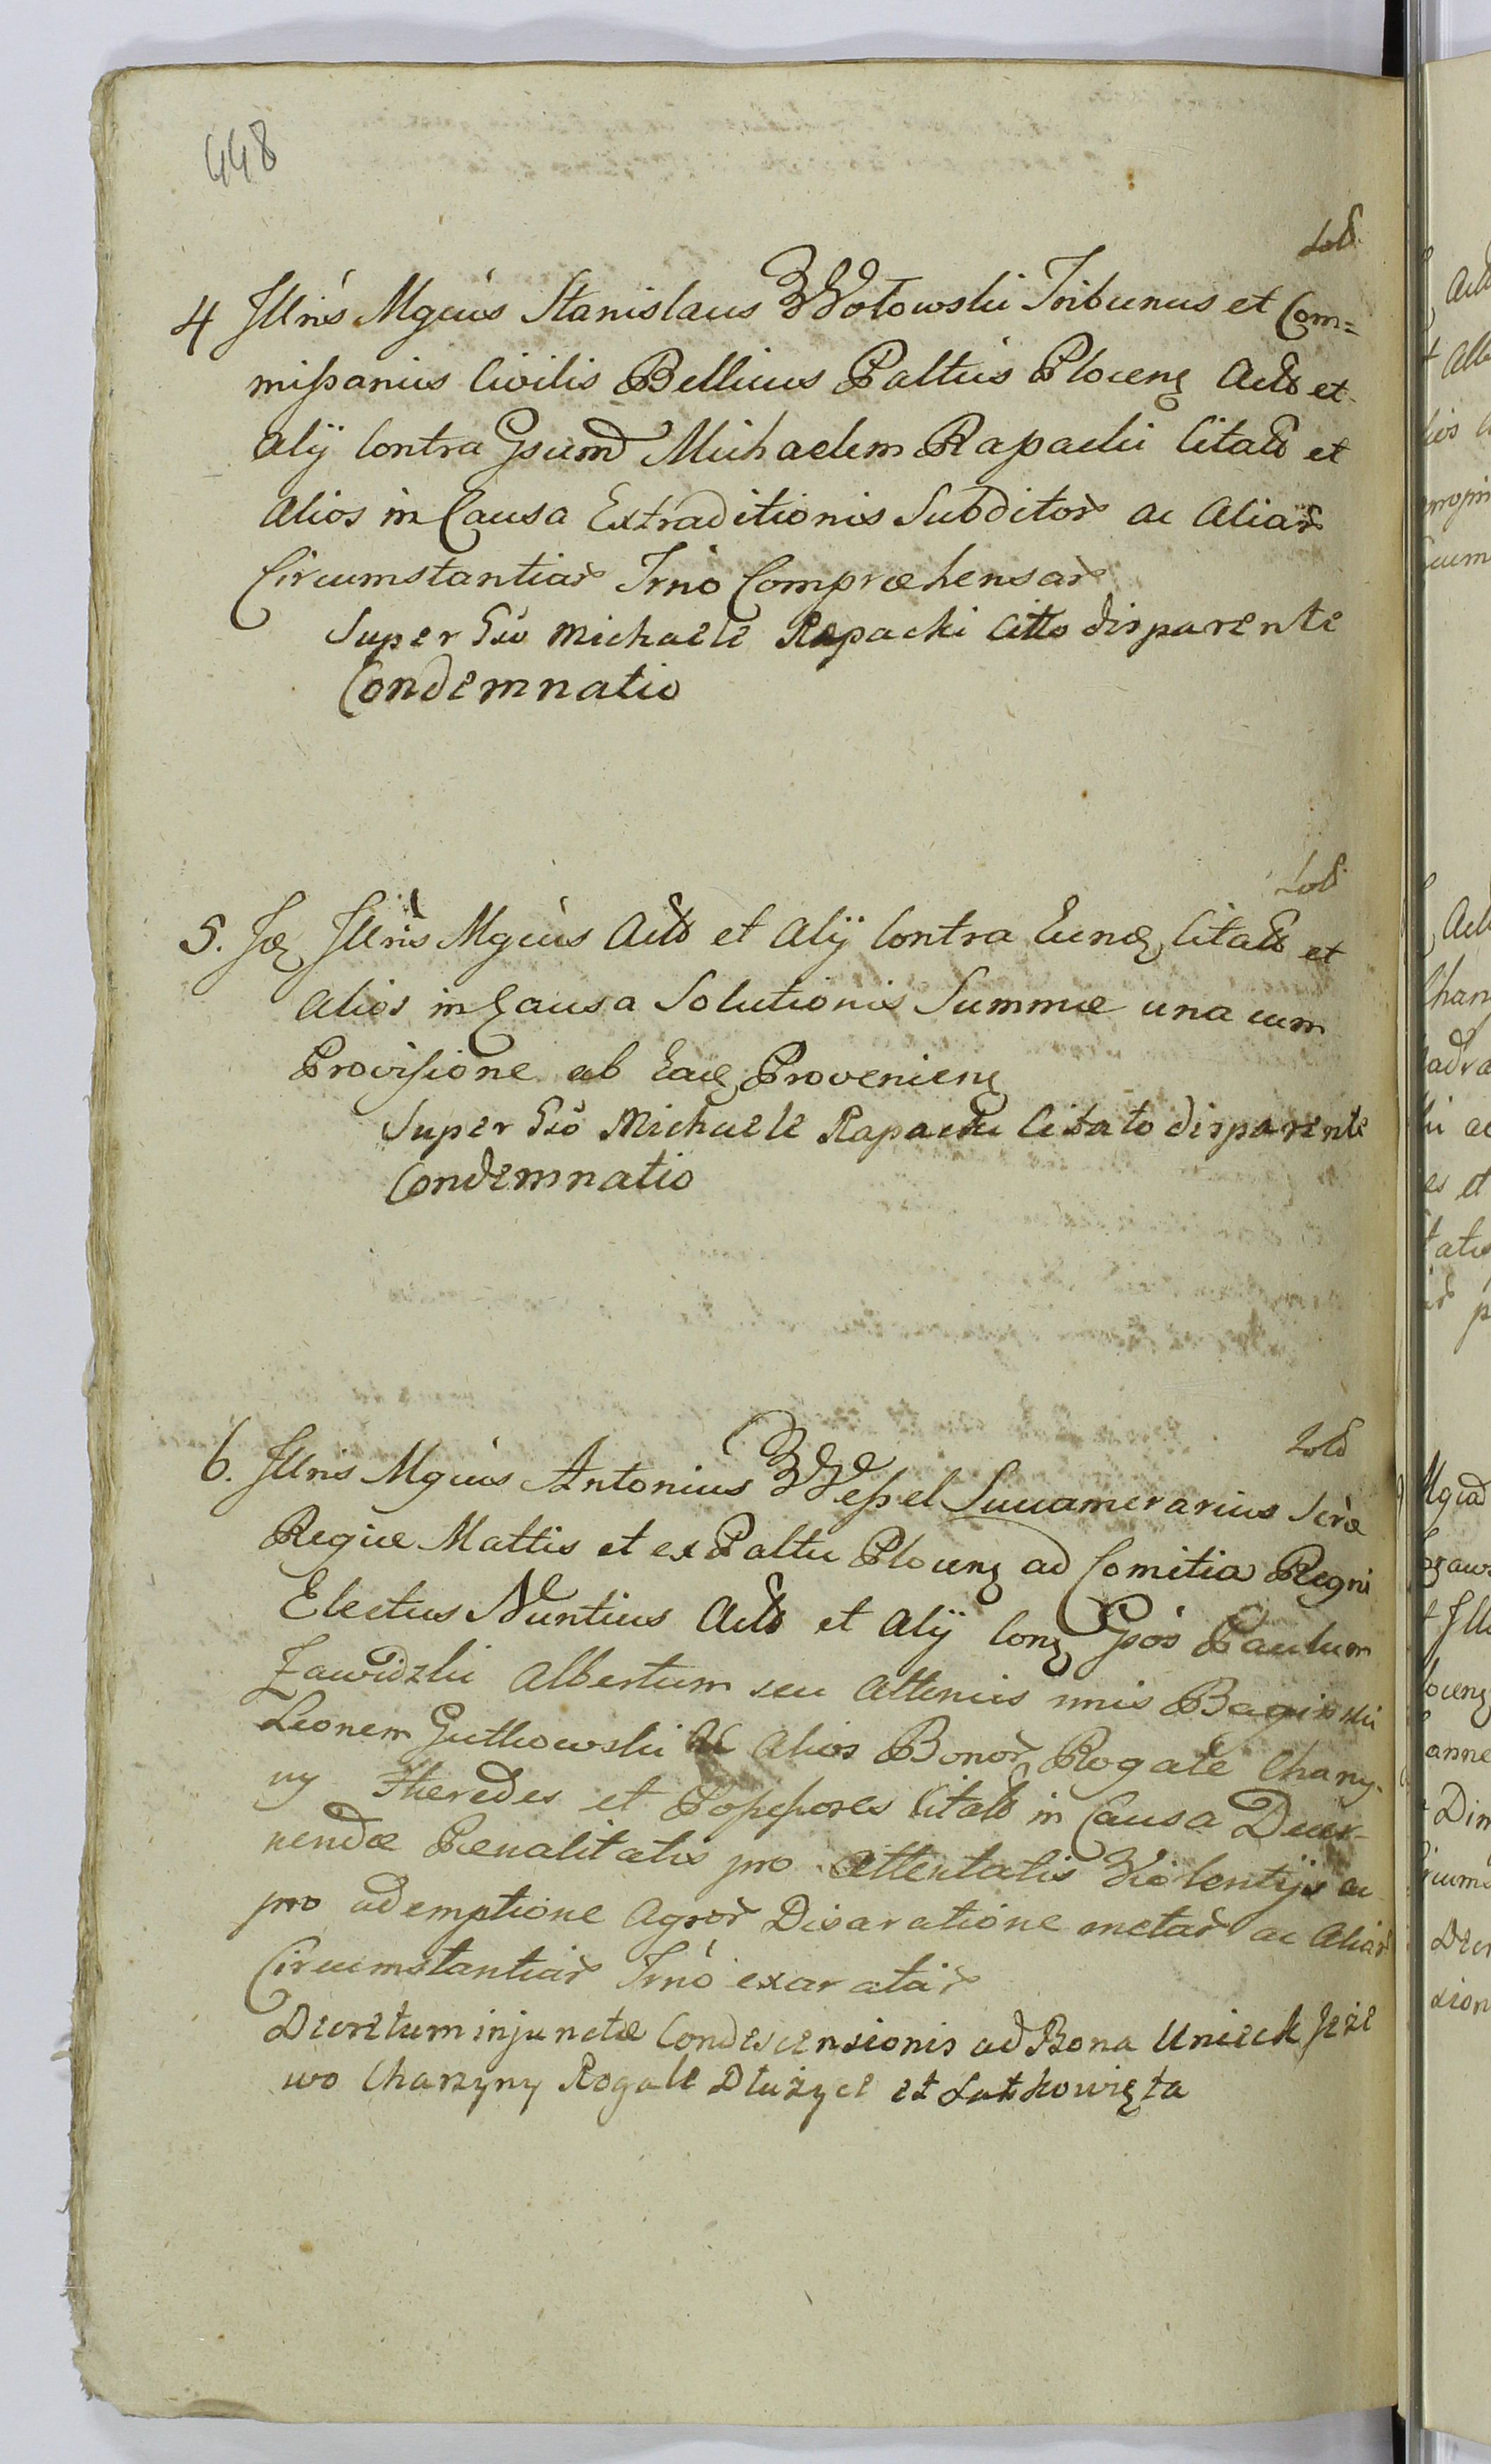 448
4 Jllris Mgcus Stanislaus Wołowski Tribunus et Com=
mißarius Civilis Bellicus Paltus Plocens Actor et
Alij Contra Gsum Michaelem Rapacki Citatt et
Alios in Causa Extraditionis Subditor ac Aliar
Circumstantiar Trno Compræhensar
Super Gso Michaele Rapacki Citto disparente
Condemnatio
5. Jd Jllris Mgcus Actor et Alij Contra Eund Citatt et
Alios in Causa Solutionis Summæ una cum
Provisione ab Eade Proveniens
Super Gso Michaele Rapacki Citato disparente
Condemnatio
6. Jllris Mgcus Antonius Weßel Succamerarius Scræ
Regiæ Mattis et ex Paltu Plocens ad Comitia Regni
Electus Nuntius Actor et Alij Con Gsos Paulum
Zawidzki Albertum seu Alterius nnis Baginski
Leonem Gutkowski Ac Alios Bonor Rogale Charzy-
ny Hæredes et Poßeßores Citatt in Causa Decer-
nendæ Pœnalitatis pro Attentatis Violentijs ac
pro ademptione Agror Disaratione metar ac Aliar
Circumstantiar Trno exaratar
Decretum injunctæ Condescensionis ad Bona Unieck Jeże
wo Charzyny Rogale Dłużyce et Lutkowięta